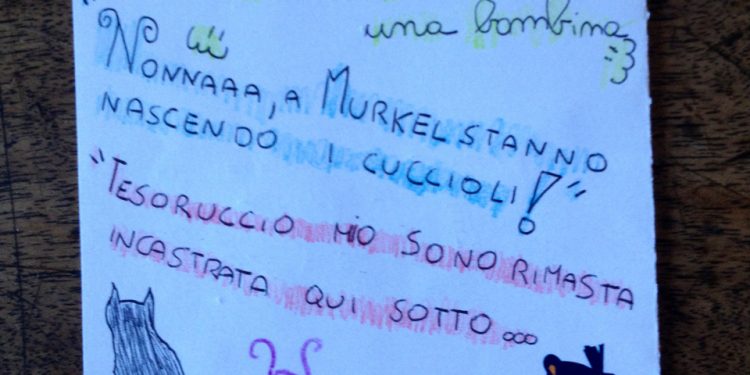 una bambina
Nonnaaa, a Murkel stanno
nascendo i cuccioli!"
"Tesoruccio mio sono rimasta
incastrata qui sotto...